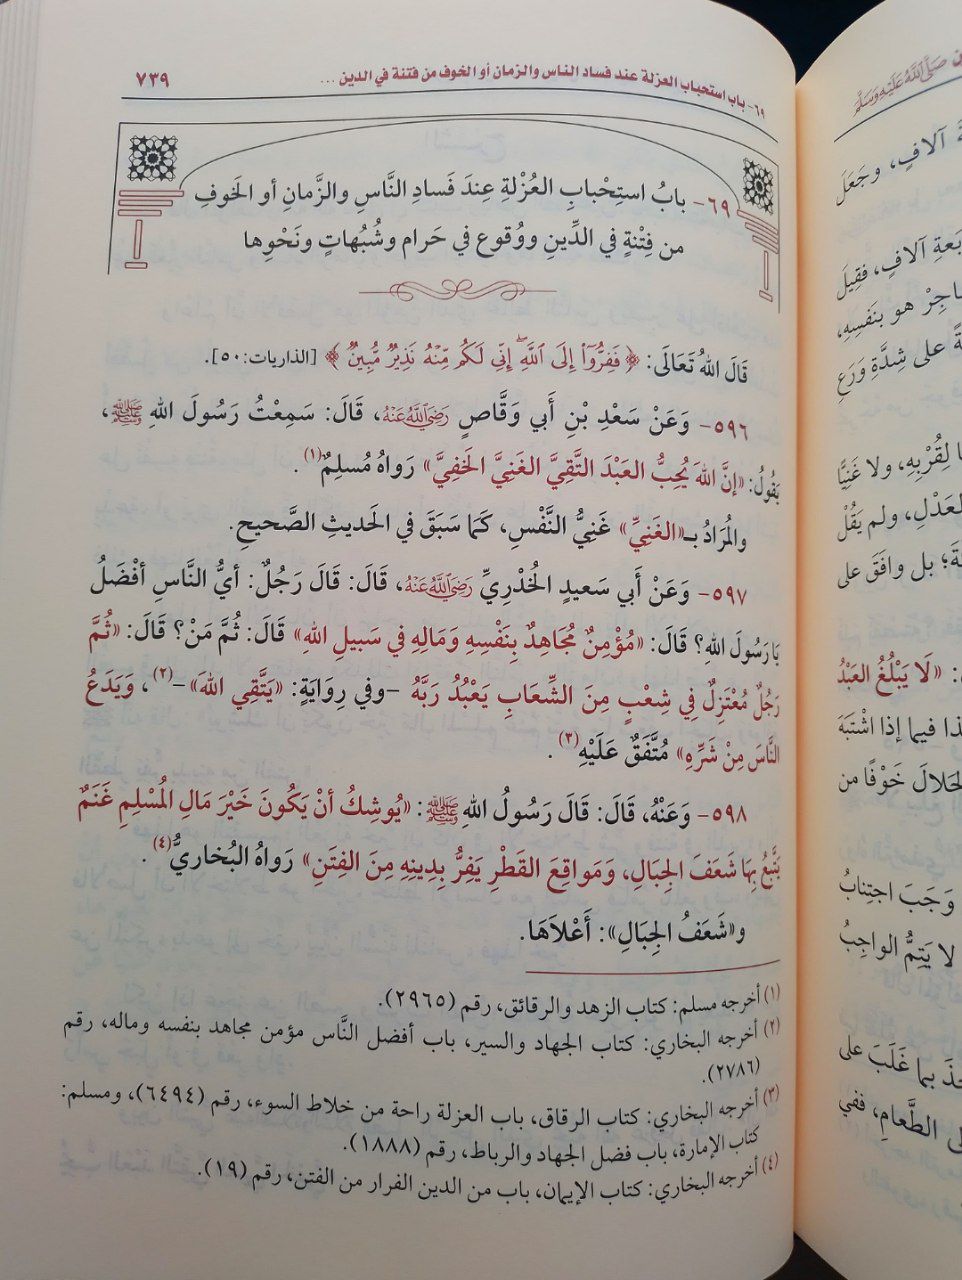 ٦٩- باب استحباب العزلة عند فساد الناس والزمان أو الخوف من فتنة في الدين ... ٧٣٩
٦٩- بابُ استِحْبابِ العُزْلةِ عِندَ فَسادِ النَّاسِ والزَّمانِ أو الخَوفِ
من فِتْنةٍ في الدِّينِ ووُقوع في حَرام وشُبُهاتٍ ونَحْوِها
قَالَ اللهُ تَعَالَى: ﴿ فَفِرُّوٓا۟ إِلَى ٱللَّهِ ۖ إِنِّى لَكُم مِّنْهُ نَذِيرٌ مُّبِينٌ ﴾ [الذاريات:٥٠].
٥٩٦- وَعَنْ سَعْدِ بْنِ أَبي وَقَّاصٍ رَضِيَ اللَّهُ عَنْهُ، قَالَ: سَمِعْتُ رَسُولَ اللهِ ﷺ،
يَقُولُ: «إنَّ اللهَ يُحِبُّ العَبْدَ التَّقِيَّ الغَنِيَّ الخَفِيَّ» رَواهُ مُسلِمٌ(١).
والمُرَادُ بـ«الغَنِيِّ» غَنِيُّ النَّفْسِ، كَمَا سَبَقَ في الحَديثِ الصَّحيحِ.
٥٩٧- وَعَنْ أَبي سَعيدٍ الخُدْرِيِّ رَضِيَ اللَّهُ عَنْهُ، قَالَ: قَالَ رَجُلٌ: أيُّ النَّاسِ أفْضَلُ
يَارَسُولَ اللهِ؟ قَالَ: «مُؤْمِنٌ مُجَاهِدٌ بِنَفْسِهِ وَمَالِهِ في سَبيلِ اللهِ» قَالَ: ثُمَّ مَنْ؟ قَالَ: «ثُمَّ
رَجُلٌ مُعْتَزِلٌ في شِعْبٍ مِنَ الشِّعَابِ يَعْبُدُ رَبَّهُ -وفي رِوَايَةٍ: «يَتَّقِي اللهَ»-(٢)، وَيَدَعُ
النَّاسَ مِنْ شَرِّهِ» مُتَّفَقٌ عَلَيْهِ(٣).
٥٩٨- وَعَنْهُ، قَالَ: قَالَ رَسُولُ اللهِ ﷺ: «يُوشِكُ أنْ يَكُونَ خَيْرَ مَالِ المُسْلِمِ غَنَمٌ
يَتَّبِعُ بِهَا شَعَفَ الجِبَالِ، وَمَواقِعَ القَطْرِ يَفِرُّ بِدِينِهِ مِنَ الفِتَنِ» رَواهُ البُخاريُّ(٤).
و«شَعَفُ الجِبَالِ»: أَعْلَاهَا.
(١) أخرجه مسلم: كتاب الزهد والرقائق، رقم (٢٩٦٥).
(٢) أخرجه البخاري: كتاب الجهاد والسير، باب أفضل النَّاس مؤمن مجاهد بنفسه وماله، رقم
(٢٧٨٦).
(٣) أخرجه البخاري: كتاب الرقاق، باب العزلة راحة من خلاط السوء، رقم (٦٤٩٤)، ومسلم:
كتاب الإمارة، باب فضل الجهاد والرباط، رقم (١٨٨٨).
(٤) أخرجه البخاري: كتاب الإيمان، باب من الدين الفرار من الفتن، رقم (١٩).
صَلَّى اللَّهُ عَلَيْهِ وَسَلَّمَ
آلافٍ، وجَعَلَ
آلافٍ، فقِيلَ
هو بنَفسِهِ،
على شِدَّةِ وَرَعِ
لِقُرْبِهِ، ولا غَنِيًّا
العَدْلِ، ولم يَقُلْ
بل وافَقَ على
«لَا يَبْلُغُ العَبْدُ
فيما إذا اشْتَبَهَ
الحَلالَ خَوْفًا من
وَجَبَ اجتِنابُ
لا يَتِمُّ الواجِبُ
بما غَلَبَ على
الطَّعامِ، ففي